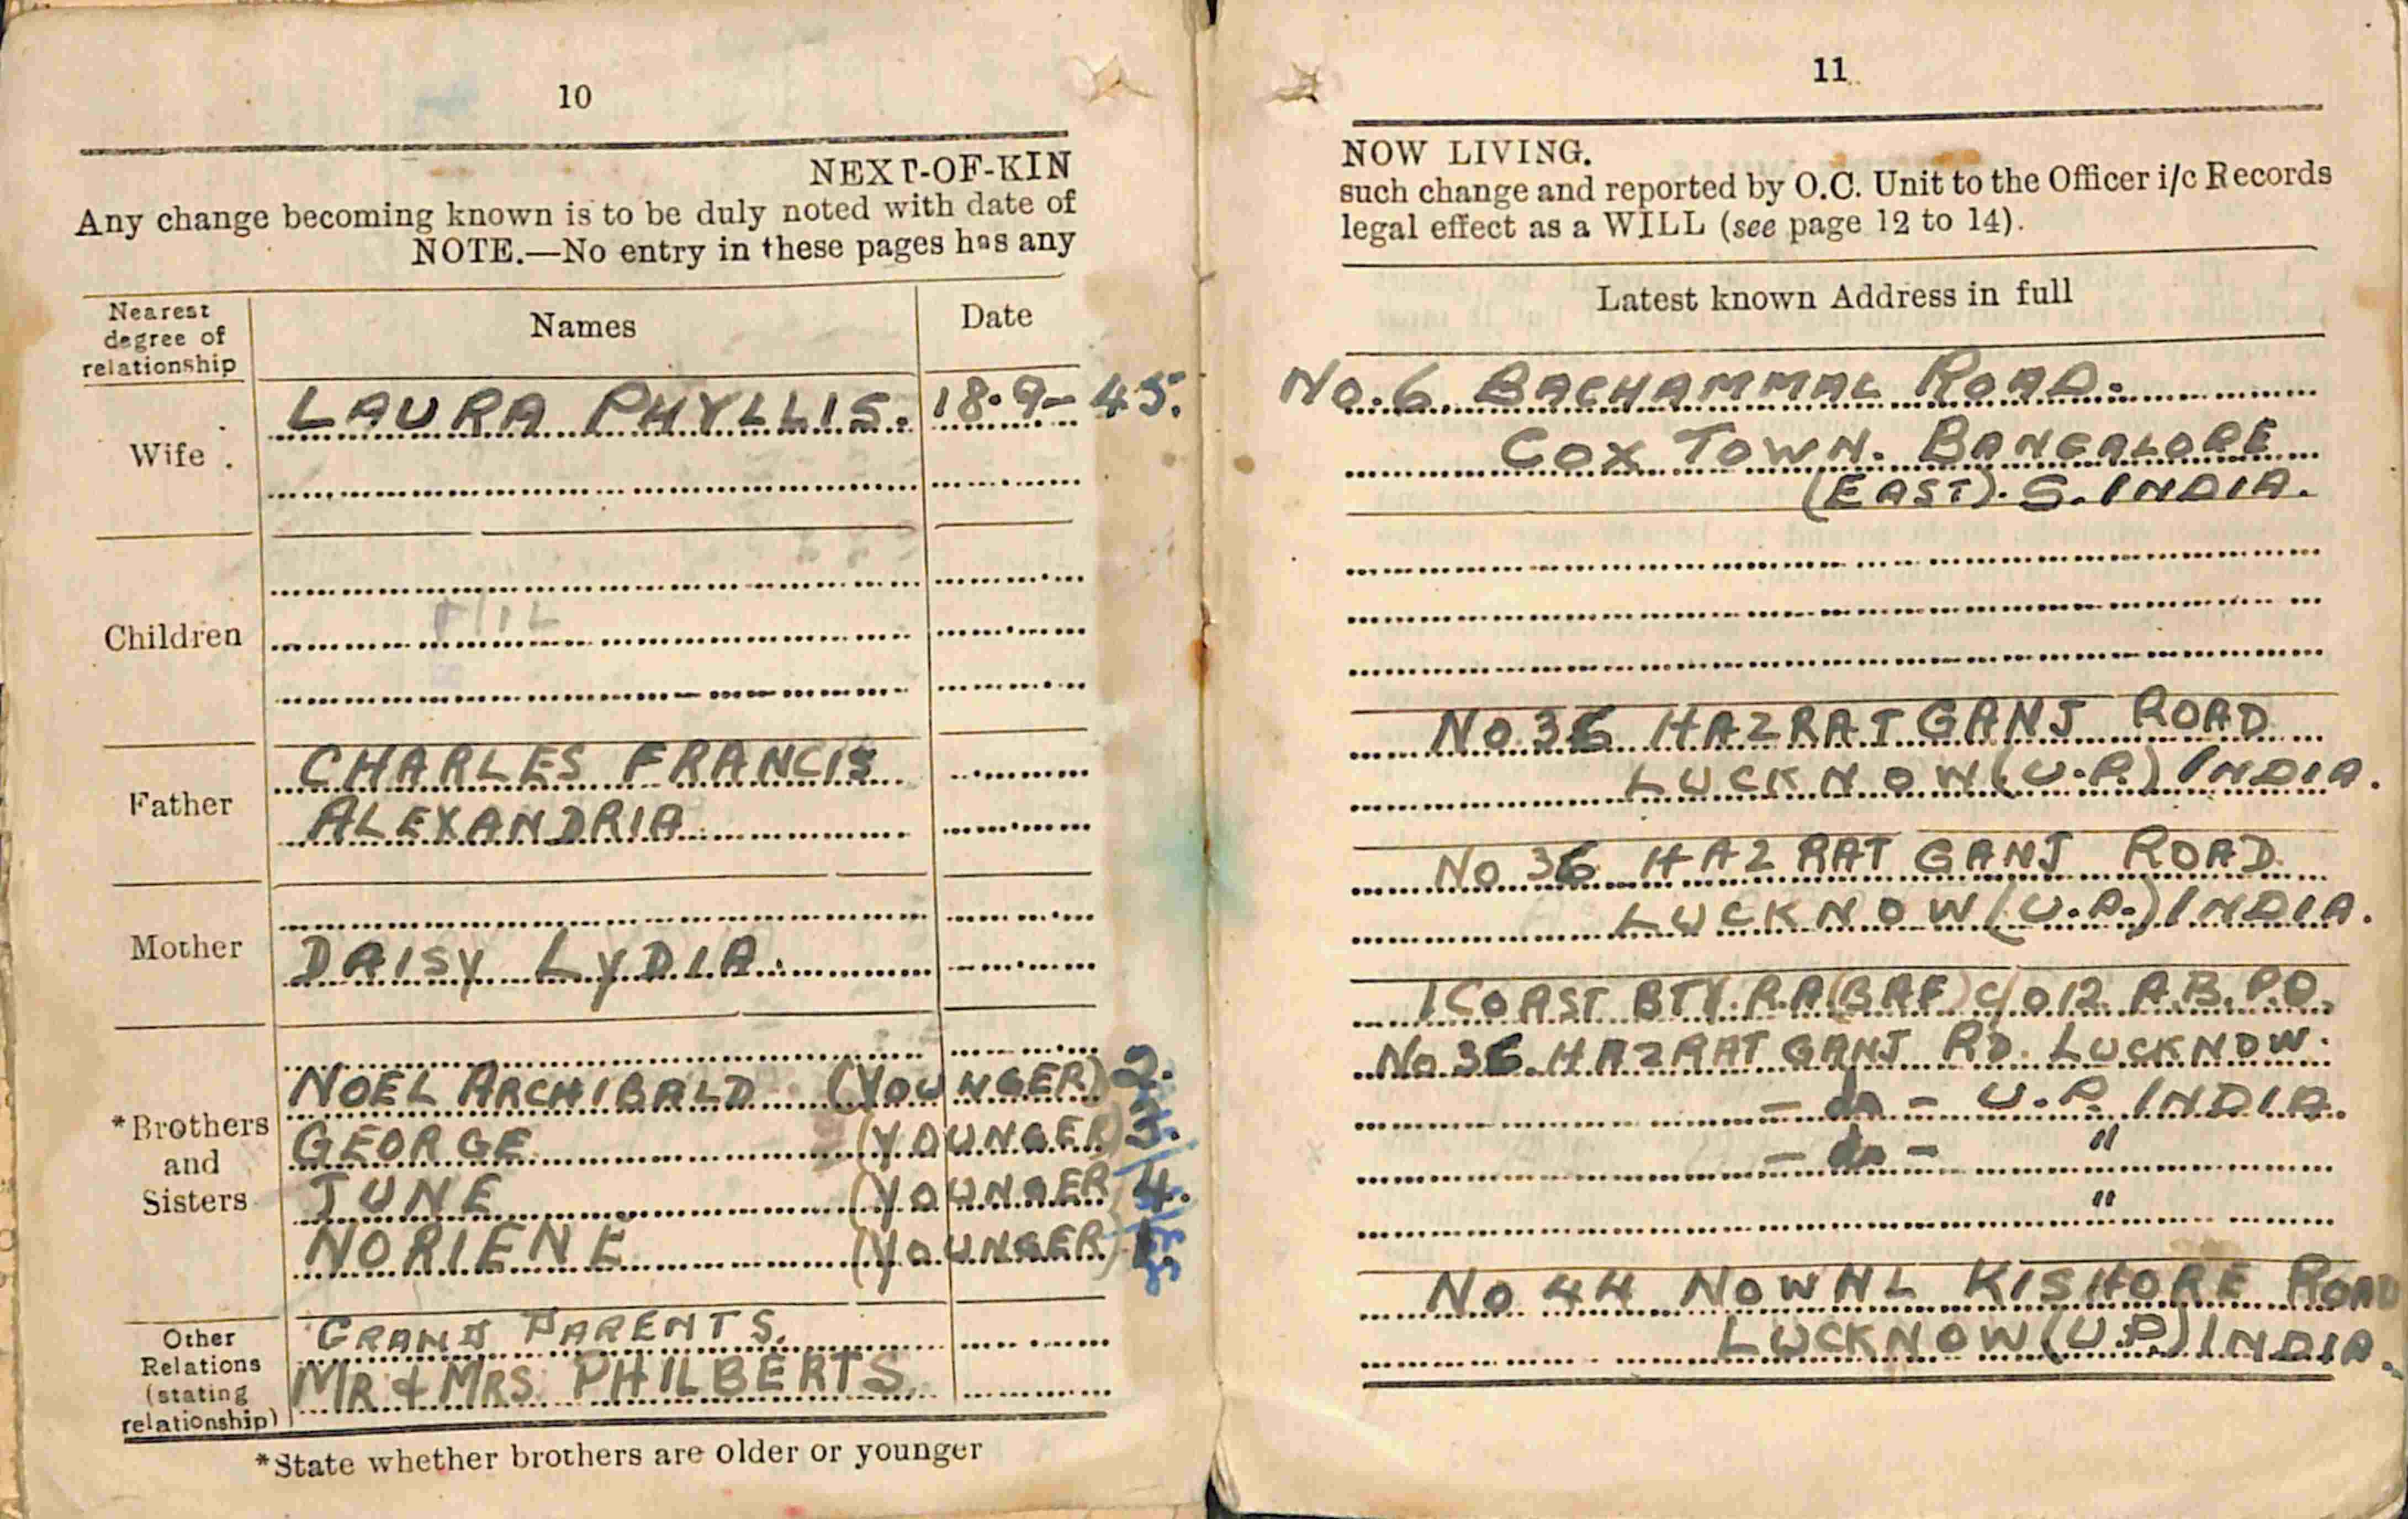 10
NEXT-OF-KIN
Any change becoming known is to be duly noted with date of
NOTE.—No entry in these pages has any
Nearest degree of relationship
Names
Date
Wife .
LAURA PHYLLIS. 18.9-45.
Children
Father
CHARLES FRANCIS
ALEXANDRIA.
Mother
DAISY LYDIA.
*Brothers and Sisters
NOEL ARCHIBALD (YOUNGER) 2.
GEORGE (YOUNGER) 3.
JUNE (YOUNGER) 4.
NORIENE (YOUNGER) 1.
Other Relations (stating relationship)
GRAND PARENTS.
MR & MRS. PHILBERTS.
*State whether brothers are older or younger
11
NOW LIVING.
such change and reported by O.C. Unit to the Officer i/c Records
legal effect as a WILL (see page 12 to 14).
Latest known Address in full
No. 6 BACHAMMAL ROAD.
COX TOWN. BANGALORE
(EAST). S. INDIA.
No 36 HAZRAT GANJ ROAD
LUCKNOW (U.P.) INDIA.
No 36 HAZRAT GANJ ROAD
LUCKNOW (U.P.) INDIA.
1 COAST BTY. R.A (BAF) c/o 12 A.B.P.O.
No 36. HAZRAT GANJ RD. LUCKNOW.
- do - U.P. INDIA.
- do - "
"
No 44 NOWHL KISHORE ROAD
LUCKNOW (U.P.) INDIA.